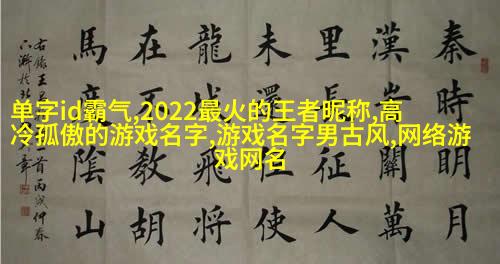 秦時明月
漢時關萬
里長征人
未還但使
龍城飛將
在不教胡
馬度陰山
右錄王
首丙戌仲春
单字id霸气,2022最火的王者昵称,高
冷孤傲的游戏名字,游戏名字男古风,网络游
戏网名